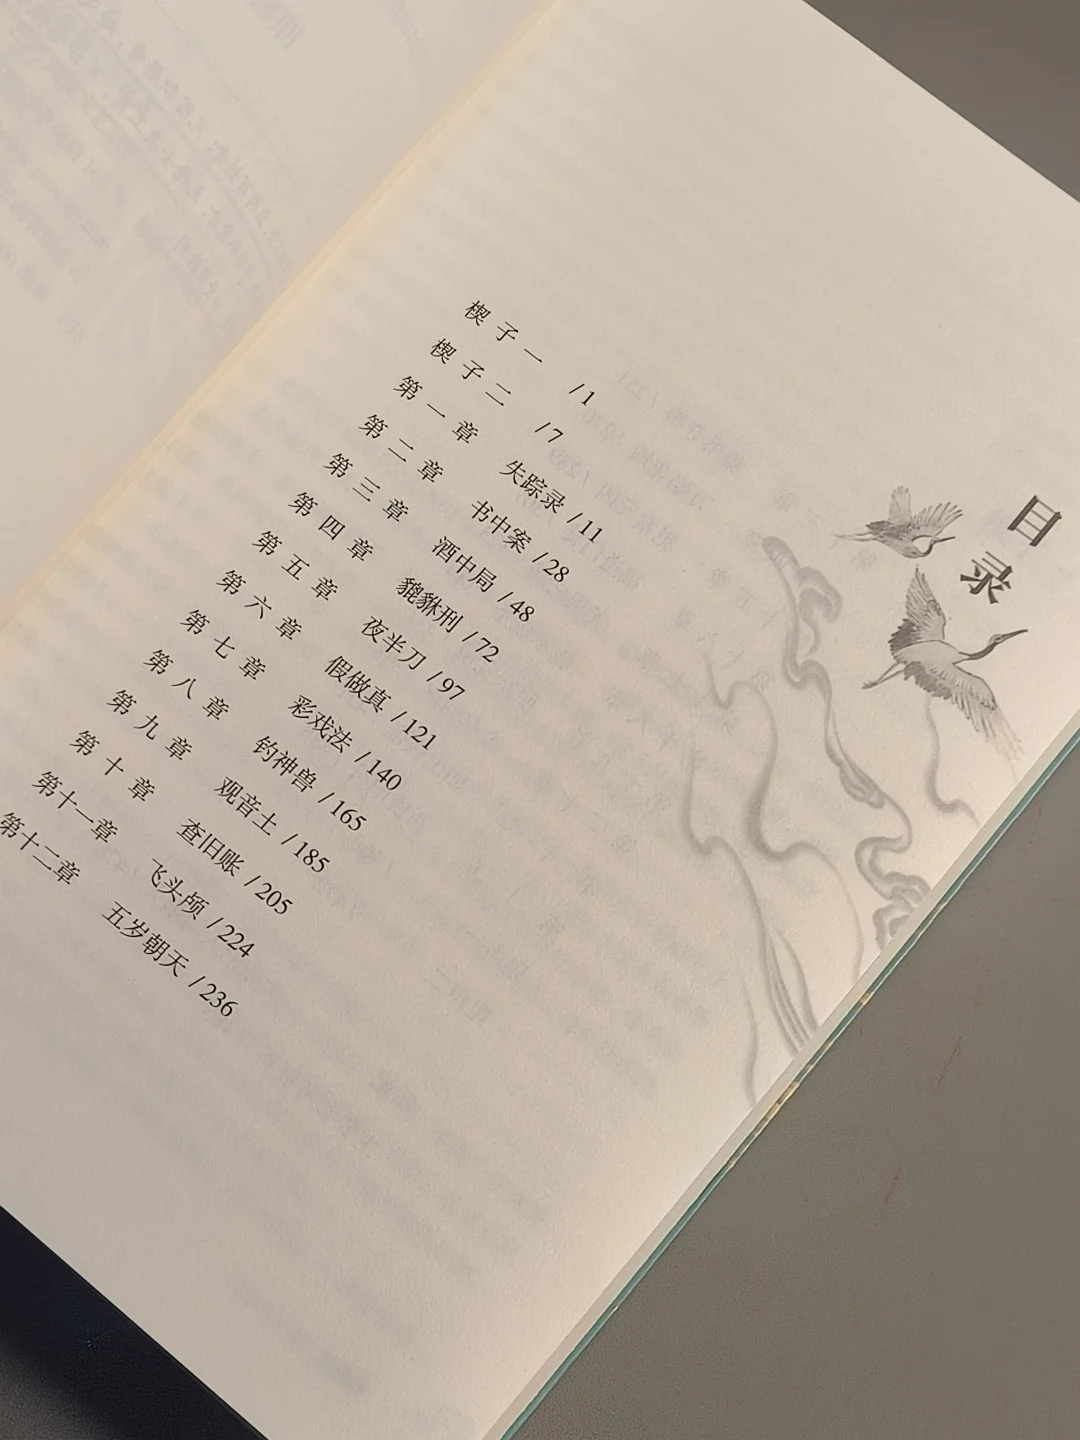 目录
楔子一 /1
楔子二 /7
第一章 失踪录 /11
第二章 书中案 /28
第三章 酒中局 /48
第四章 貔貅刑 /72
第五章 夜半刀 /97
第六章 假做真 /121
第七章 彩戏法 /140
第八章 钓神兽 /165
第九章 观音土 /185
第十章 查旧账 /205
第十一章 飞头颅 /224
第十二章 五岁朝天 /236